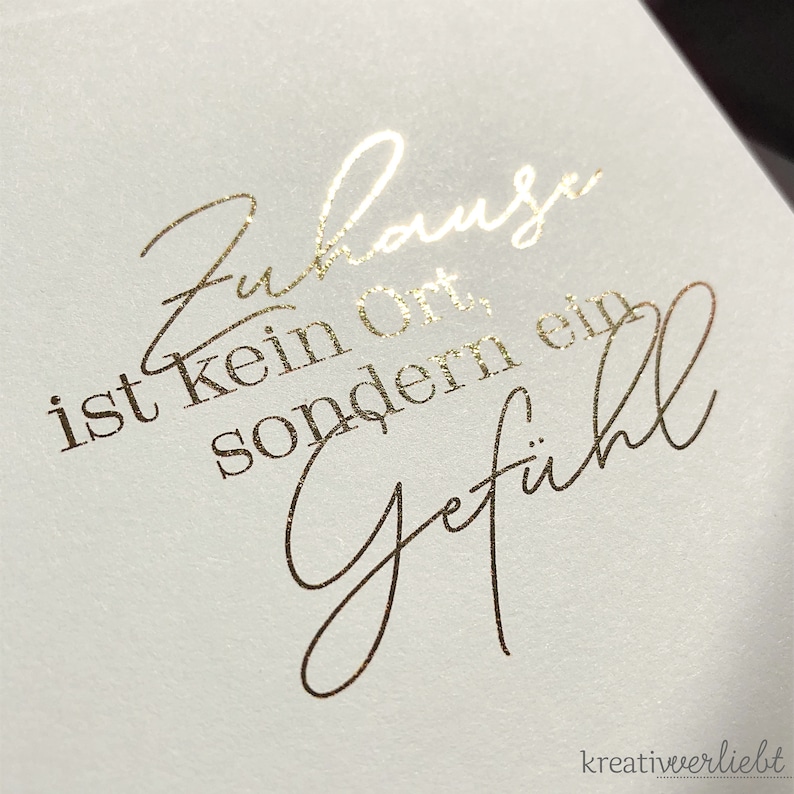 Zuhause
ist kein Ort,
sondern ein
Gefühl
kreativverliebt